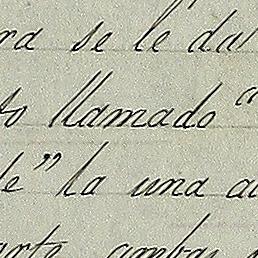 ra se le da
to llamado "
de" la una a
arte, ambas